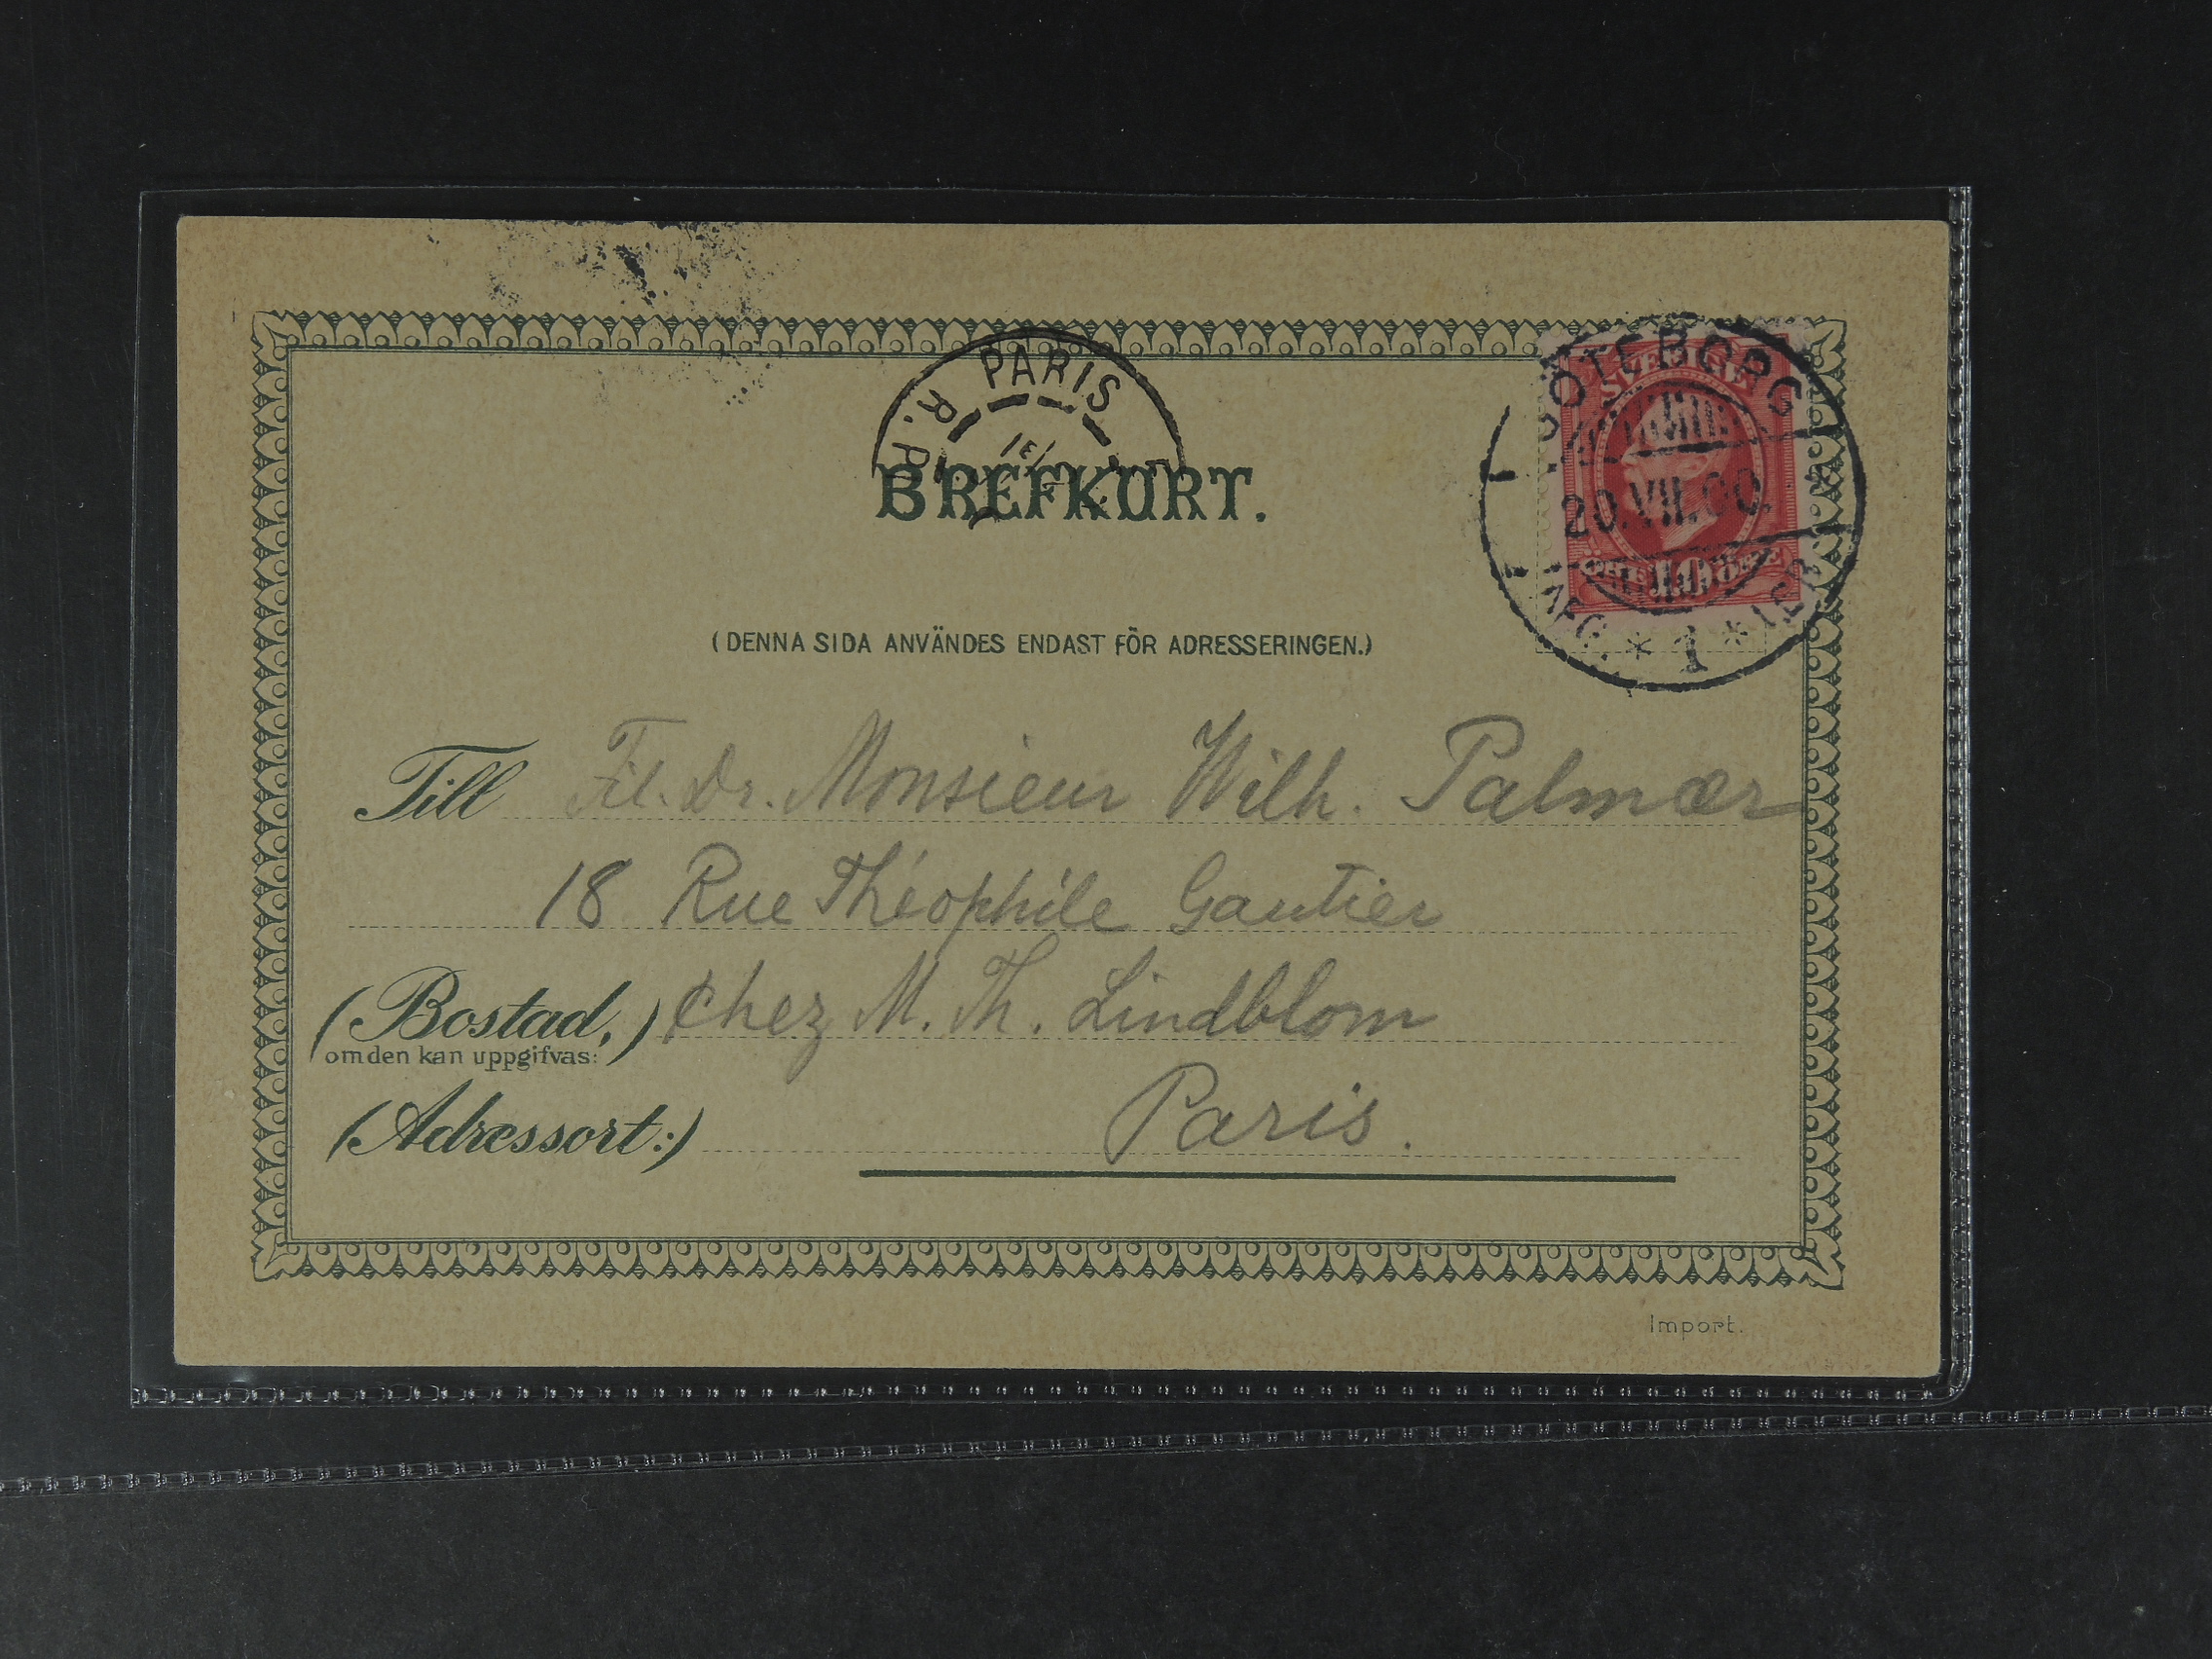 PARIS
R. P.
GÖTEBORG
SVERIGE
20.VII.00.
ÖRE 10 ÖRE
* 1 *
BREFKORT.
(DENNA SIDA ANVÄNDES ENDAST FÖR ADRESSERINGEN.)
Till Fil. Dr. Monsieur Wilh. Palmær
18 Rue Théophile Gautier
(Bostad,) Chez M. Th. Lindblom
om den kan uppgifvas:
(Adressort:) Paris.
Import.